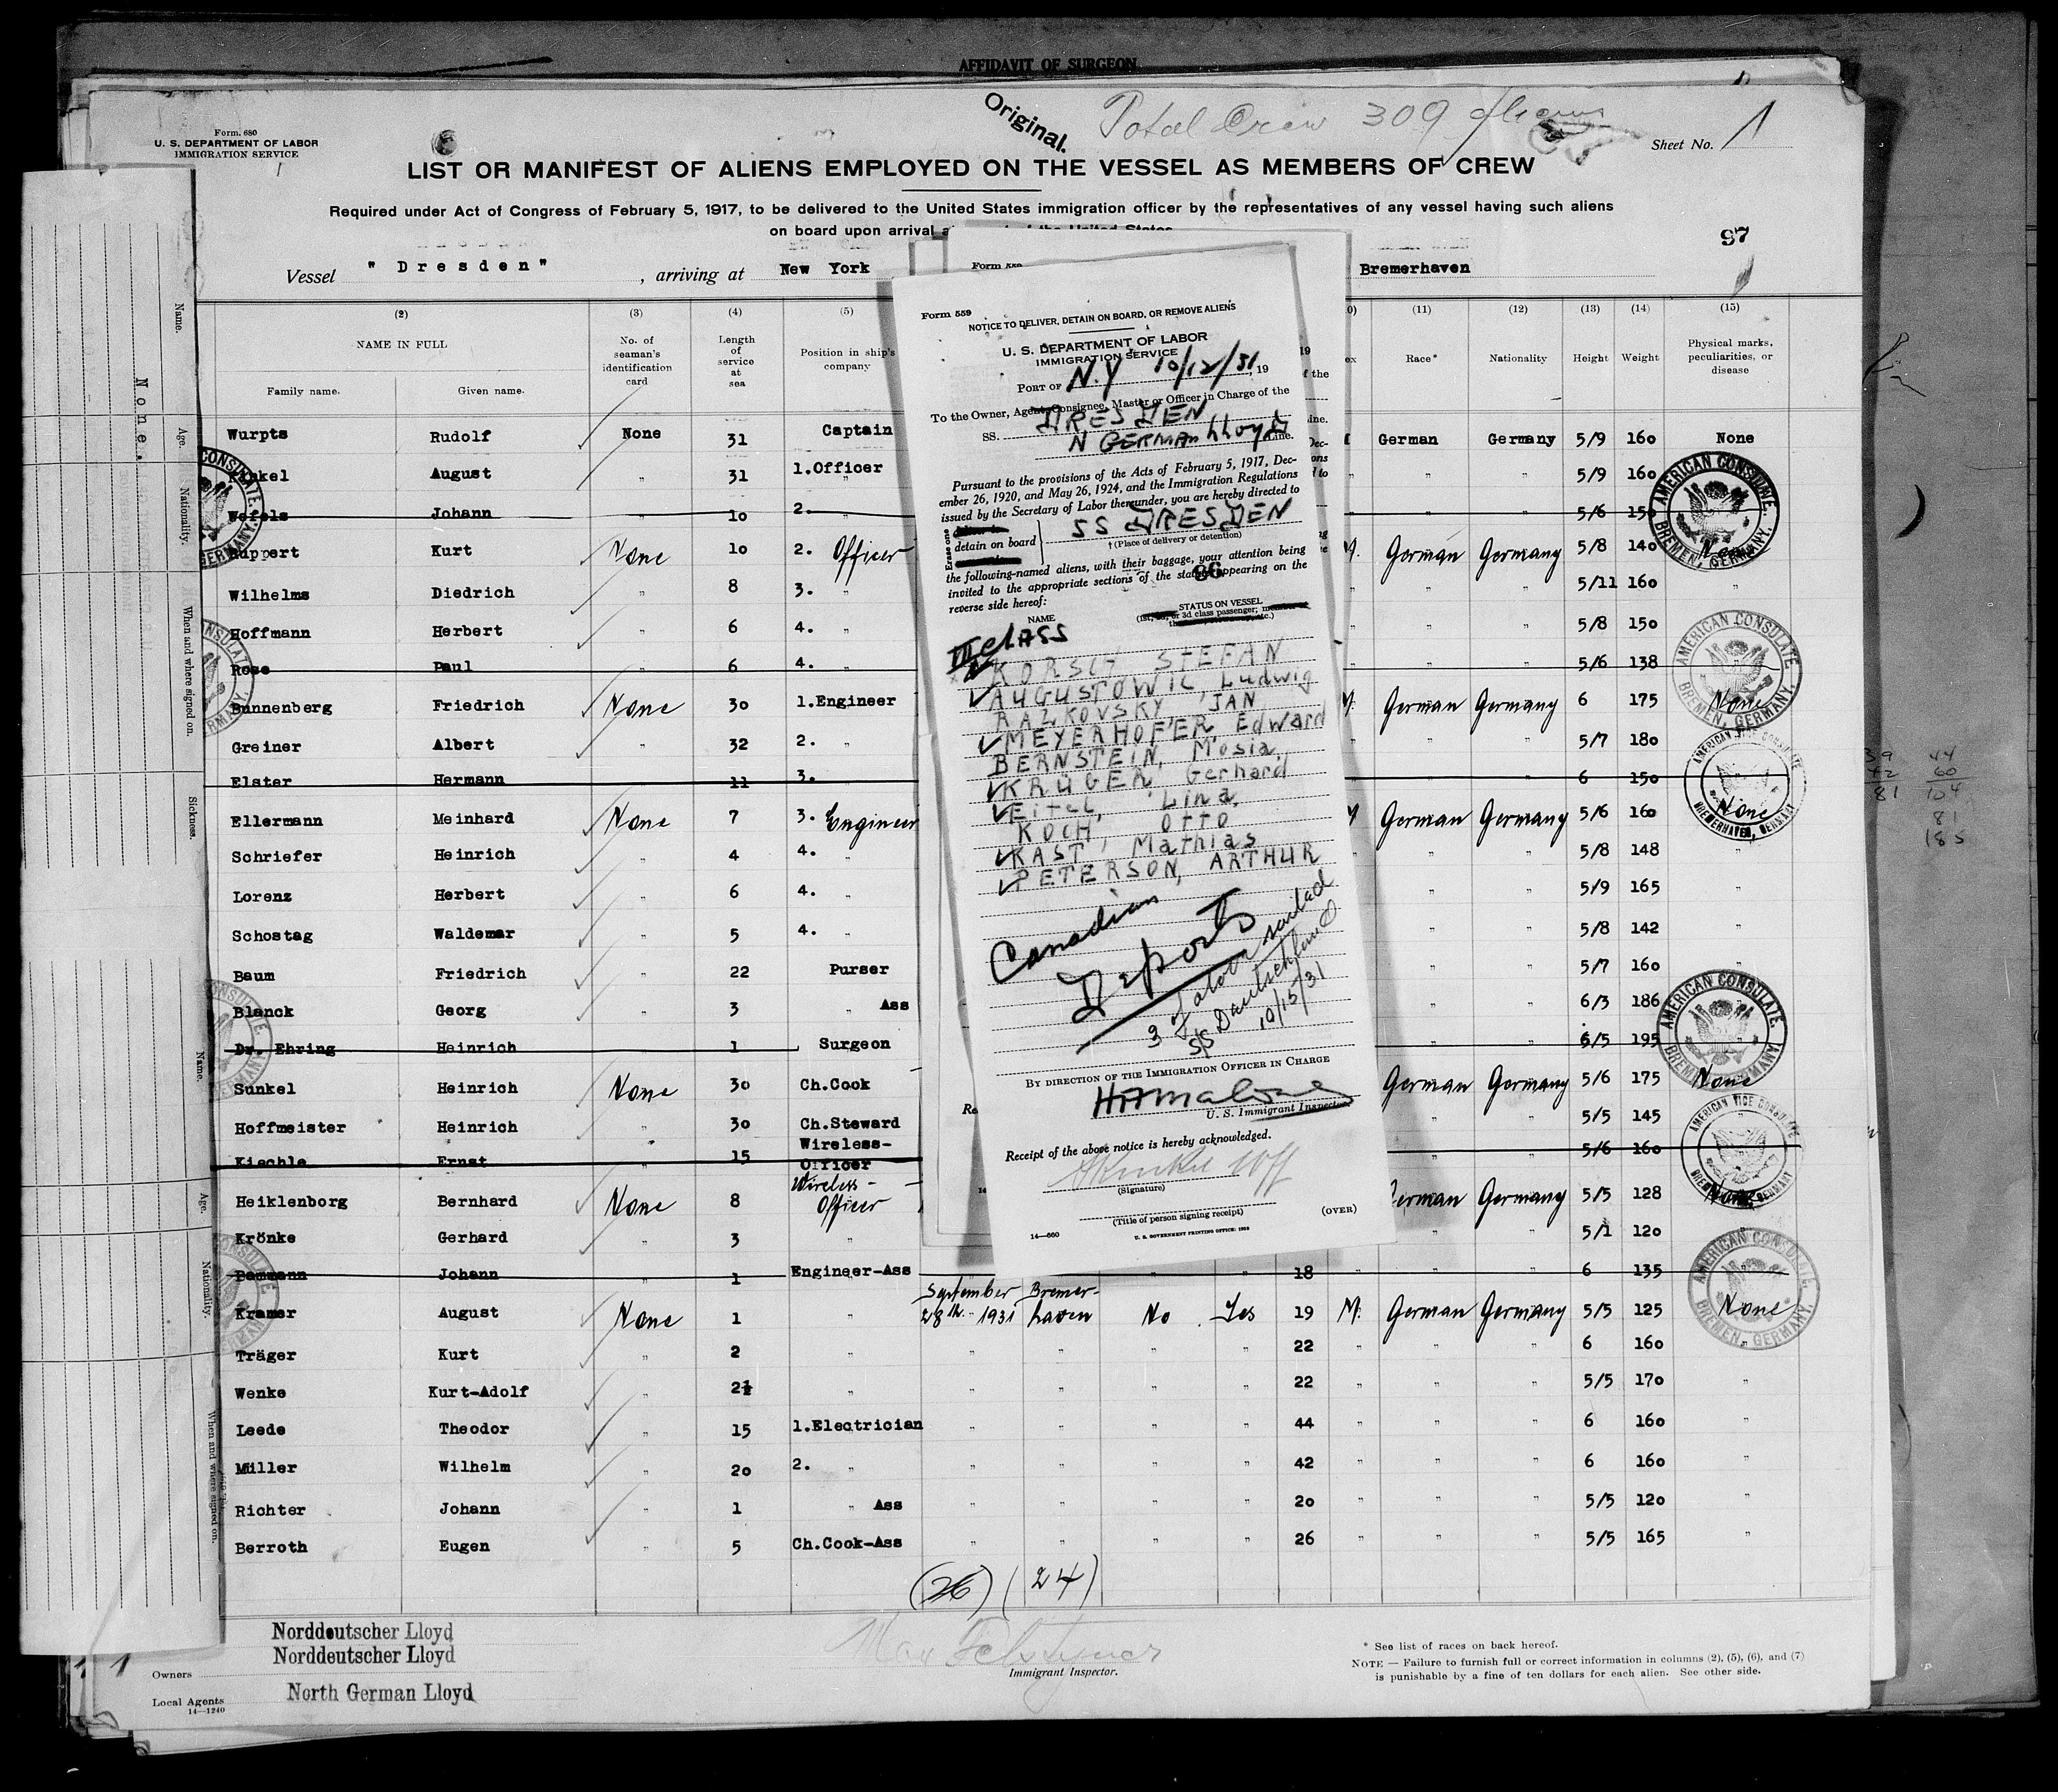 AFFIDAVIT OF SURGEON
Original.
Total Crew 309 Aliens
Form. 680
U. S. DEPARTMENT OF LABOR
IMMIGRATION SERVICE
Sheet No. 1
LIST OR MANIFEST OF ALIENS EMPLOYED ON THE VESSEL AS MEMBERS OF CREW
Required under Act of Congress of February 5, 1917, to be delivered to the United States immigration officer by the representatives of any vessel having such aliens
on board upon arrival
97
Vessel "Dresden" , arriving at New York Bremerhaven
(2) (3) (4) (5) (11) (12) (13) (14) (15)
NAME IN FULL No. of seaman's identification card Length of service at sea Position in ship's company Race* Nationality Height Weight Physical marks, peculiarities, or disease
Family name. Given name.
Wurpts Rudolf None 31 Captain German Germany 5/9 160 None
August " 31 1.Officer " " 5/9 160
Wefels Johann " 10 2. " " " 5/6 150
Ruppert Kurt None 10 2. Officer M. German Germany 5/8 140 None
Wilhelms Diedrich " 8 3. " " " 5/11 160 "
Hoffmann Herbert " 6 4. " " " 5/8 150
Rose Paul " 6 4. " " " 5/6 138
Bunnenberg Friedrich None 30 1.Engineer M. German Germany 6 175 None
Greiner Albert " 32 2. " " " 5/7 180
Elster Hermann 11 3. " " 6 150
Ellermann Meinhard None 7 3. Engineer M German Germany 5/6 160 None
Schriefer Heinrich " 4 4. " " " 5/8 148 "
Lorenz Herbert " 6 4. " " " 5/9 165 "
Schostag Waldemar " 5 4. " " " 5/8 142 "
Baum Friedrich " 22 Purser " " 5/7 160 "
Blanck Georg " 3 " Ass " " 6/3 186
Dr. Ehring Heinrich " 1 Surgeon " " 6/5 195
Sunkel Heinrich None 30 Ch.Cook German Germany 5/6 175 None
Hoffmeister Heinrich " 30 Ch.Steward " " 5/5 145 "
Kiechle Ernst " 15 Wireless-Officer " " 5/6 160
Heiklenborg Bernhard None 8 Wireless-Officer German Germany 5/5 128 None
Krönke Gerhard " 3 " " " 5/1 120 "
Bammann Johann " 1 Engineer-Ass " " 18 " " 6 135
Kramer August None 1 " September 28th 1931 Bremerhaven No Yes 19 M. German Germany 5/5 125 None
Träger Kurt " 2 " " " " " 22 " " " 6 160 "
Wenke Kurt-Adolf " 2½ " " " " " 22 " " " 5/5 170 "
Leede Theodor " 15 1.Electrician " " " " 44 " " " 6 160 "
Müller Wilhelm " 20 2. " " " " " 42 " " " 6 160 "
Richter Johann " 1 " Ass " " " " 20 " " " 5/5 120 "
Berroth Eugen " 5 Ch.Cook-Ass " " " " 26 " " " 5/5 165 "
(26) (24)
Norddeutscher Lloyd
Norddeutscher Lloyd
Owners
North German Lloyd
Local Agents
14—1240
Immigrant Inspector.
* See list of races on back hereof.
NOTE — Failure to furnish full or correct information in columns (2), (5), (6), and (7)
is punishable by a fine of ten dollars for each alien. See other side.
Form 559
NOTICE TO DELIVER, DETAIN ON BOARD, OR REMOVE ALIENS
U. S. DEPARTMENT OF LABOR
IMMIGRATION SERVICE
PORT OF N.Y 10/12/31, 19
To the Owner, Agent, Consignee, Master or Officer in Charge of the
SS. DRESDEN
N GERMAN LLoyd Line.
Pursuant to the provisions of the Acts of February 5, 1917, Dec-
ember 26, 1920, and May 26, 1924, and the Immigration Regulations
issued by the Secretary of Labor thereunder, you are hereby directed to
Erase one
detain on board SS DRESDEN
† (Place of delivery or detention)
the following-named aliens, with their baggage, your attention being
invited to the appropriate sections of the statute appearing on the
reverse side hereof:
86
NAME STATUS ON VESSEL
III CLASS
KORSIT STEFAN
AUGUSTOWIC, Ludwig
RAZKOVSKY, JAN
MEYERHOFER Edward
BERNSTEIN, Mosia
KRUGER Gerhard
Eitel Lina
KOCH, Otto
KAST, Mathias
PETERSON, ARTHUR
Canadian
Deports
3 Falour sailed
S/S Deutschland
10/15/31
BY DIRECTION OF THE IMMIGRATION OFFICER IN CHARGE
HAMalone
U. S. Immigrant Inspector
Receipt of the above notice is hereby acknowledged.
(Signature)
(Title of person signing receipt)
(OVER)
14—660
U. S. GOVERNMENT PRINTING OFFICE: 1928
AMERICAN CONSULATE.
BREMEN, GERMANY.
AMERICAN CONSULATE
BREMEN, GERMANY.
AMERICAN VICE CONSULATE
BREMERHAVEN, GERMANY
AMERICAN CONSULATE.
BREMEN, GERMANY.
AMERICAN VICE CONSULATE
BREMERHAVEN, GERMANY
AMERICAN CONSULATE.
BREMEN, GERMANY.
None.
Name.
Age.
Nationality.
When and where signed on.
Sickness.
Name.
Age.
Nationality.
When and where signed on.
39 44
42 60
81 104
81
185